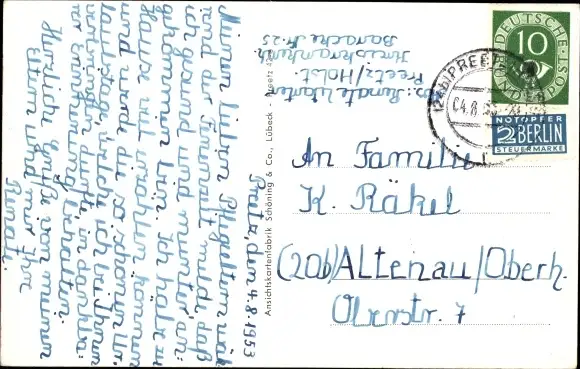 Preetz, den 4.8.1953
Meinen lieben Pflegeltern
und die Fernwelt
ich gesund und munter an-
gekommen bin. Ich habe zu
Hause viel erzählen können
und werde die so schönen Ur-
laubstage, welche ich bei Ihnen
verbringen durfte, in dankba-
rer Erinnerung behalten.
Herzliche Grüße von meinen
Eltern und mir Ihre
Renate
Ansichtskartenfabrik Schöning & Co., Lübeck - Preetz
Renate
Preetz/Holst.
Kreiskrankenh.
Baracke Nr. 25
DEUTSCHE BUNDESPOST
10
(24b) PREETZ
NOTOPFER
2 BERLIN
STEUERMARKE
An Familie
K. Räkel
(20b) Altenau/Oberh.
Oberstr. 7